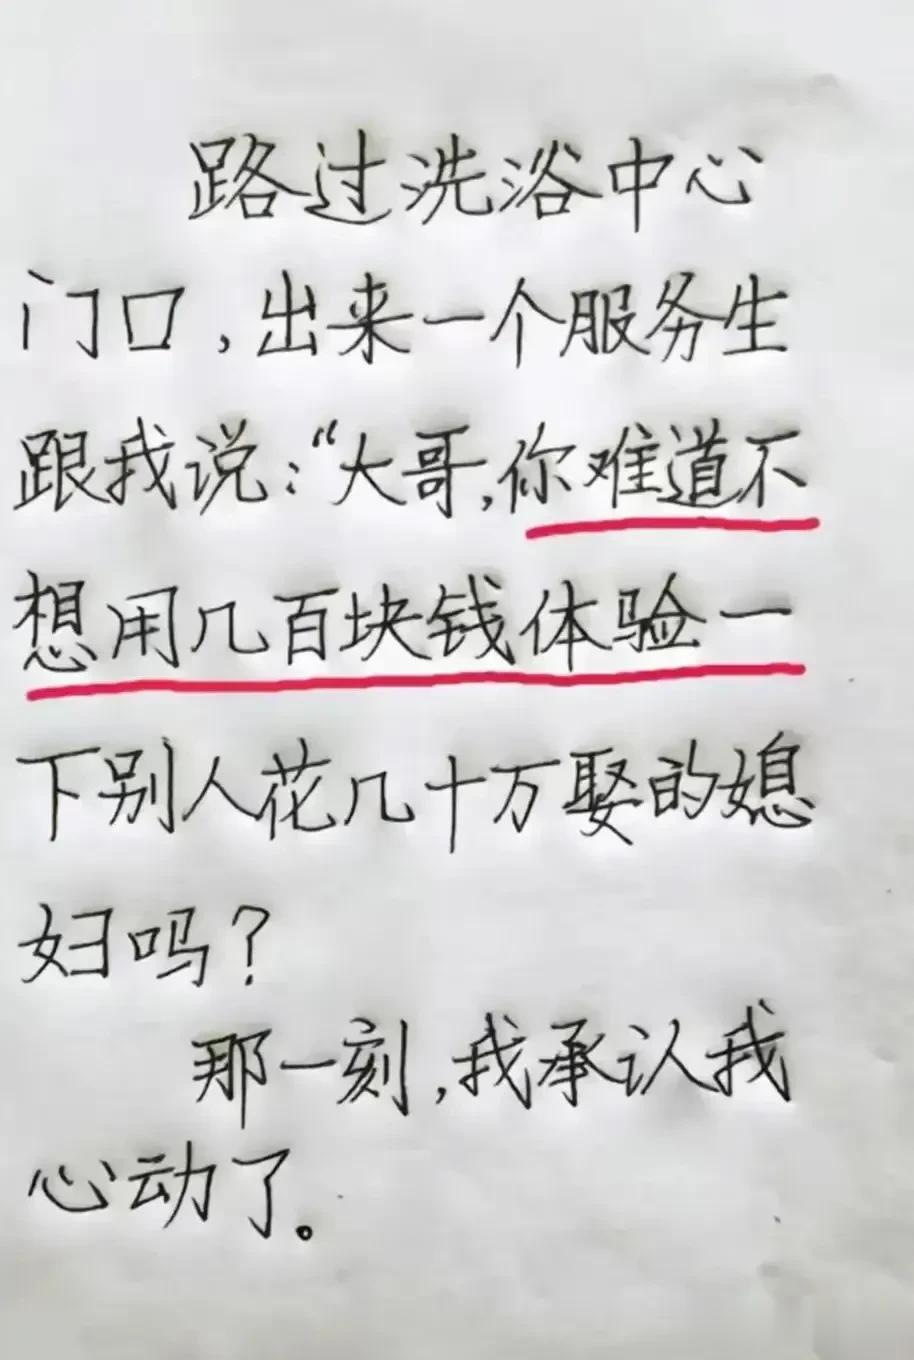 路过洗浴中心
门口，出来一个服务生
跟我说：“大哥，你难道不
想用几百块钱体验一
下别人花几十万娶的媳
妇吗？
那一刻，我承认我
心动了。